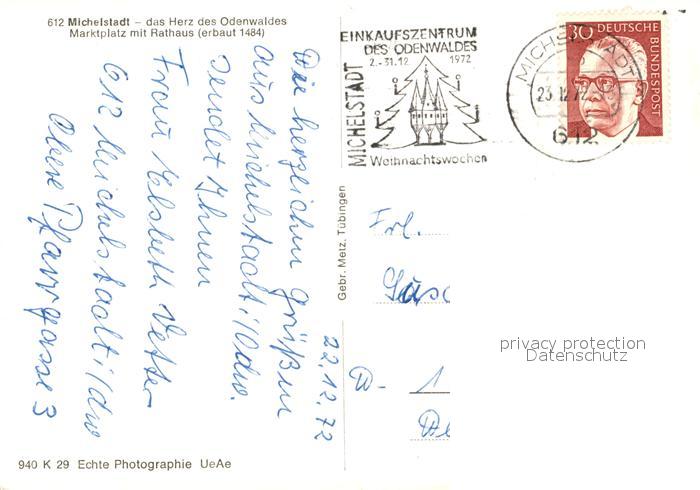 612 Michelstadt – das Herz des Odenwaldes
Marktplatz mit Rathaus (erbaut 1484)
22.12.72
Die herzlichen Grüße
aus Michelstadt i/Odw.
sendet Ihnen
Frau Elsbeth Vetter
612 Michelstadt i/Odw
Obere Pfarrgasse 3
940 K 29 Echte Photographie UeAe
Gebr. Metz, Tübingen
EINKAUFSZENTRUM
DES ODENWALDES
2.-31.12 1972
MICHELSTADT
Weihnachtswochen
MICHELSTADT
23.12.72
612
30 DEUTSCHE
BUNDESPOST
Frl.
D- 1
privacy protection
Datenschutz